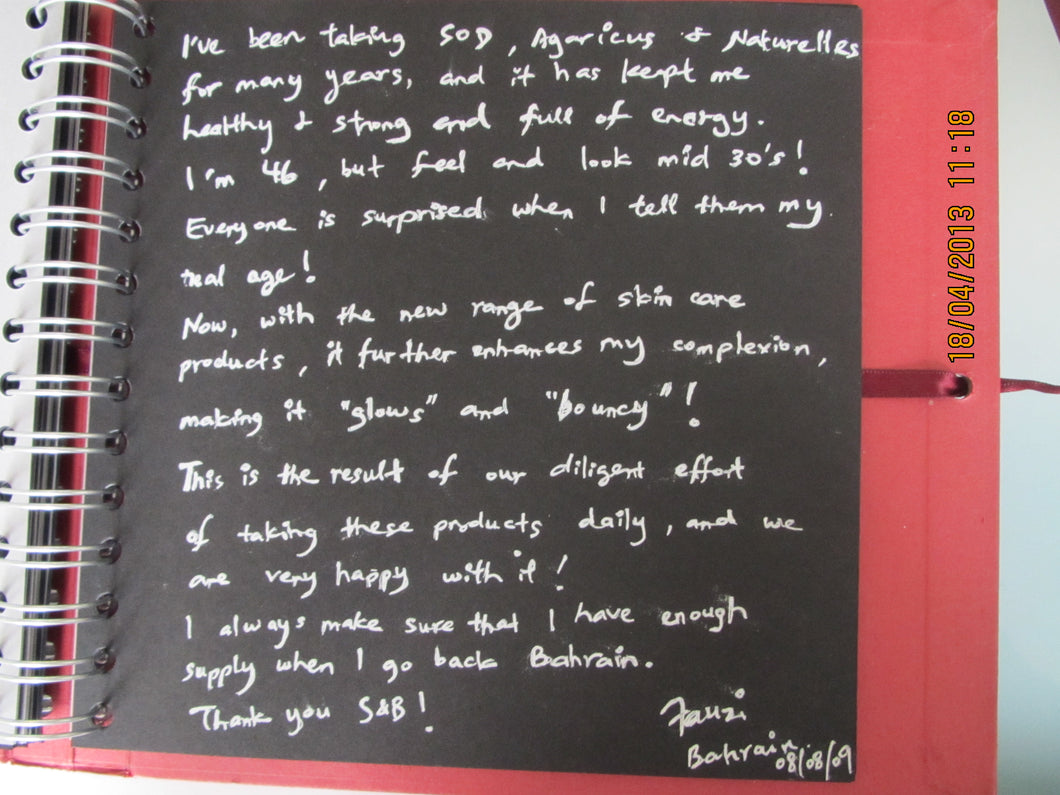 I've been taking SOD, Agaricus & Naturelles
for many years, and it has kept me
healthy & strong and full of energy.
I'm 46, but feel and look mid 30's!
Everyone is surprised when I tell them my
real age!
Now, with the new range of skin care
products, it further enhances my complexion,
making it "glows" and "bouncy"!
This is the result of our diligent effort
of taking these products daily, and we
are very happy with it!
I always make sure that I have enough
supply when I go back Bahrain.
Thank you S&B!
Fauzi
Bahrain
08/08/09
18/04/2013 11:18